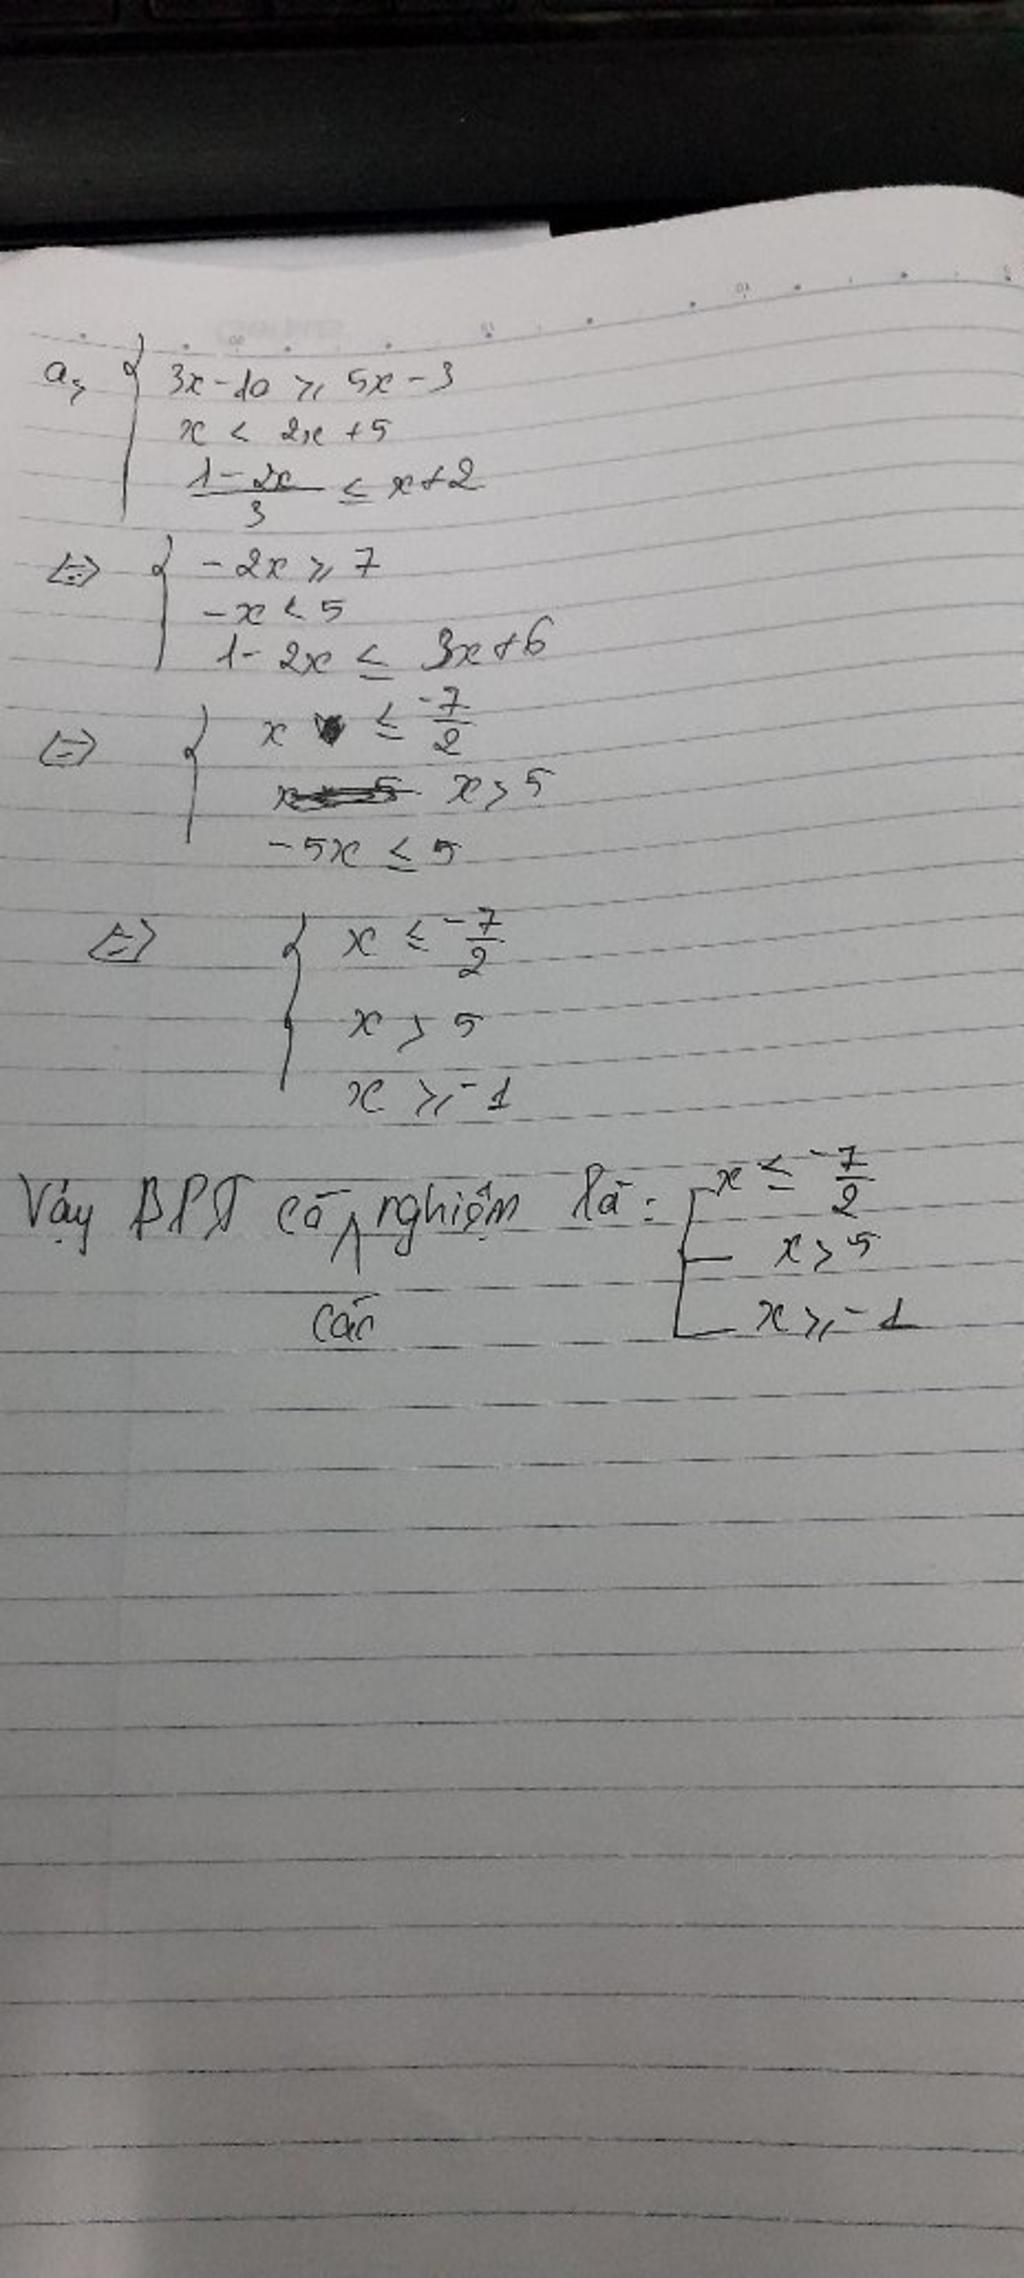 a, { 3x - 10 ⩾ 5x - 3
x < 2x + 5
(1 - 2x)/3 ≤ x + 2
<=> { -2x ⩾ 7
-x < 5
1 - 2x ≤ 3x + 6
<=> { x ≤ -7/2
x > 5
-5x ≤ 5
<=> { x ≤ -7/2
x > 5
x ⩾ -1
Vậy BPT có nghiệm là: [ x ≤ -7/2
x > 5
các
x ⩾ -1